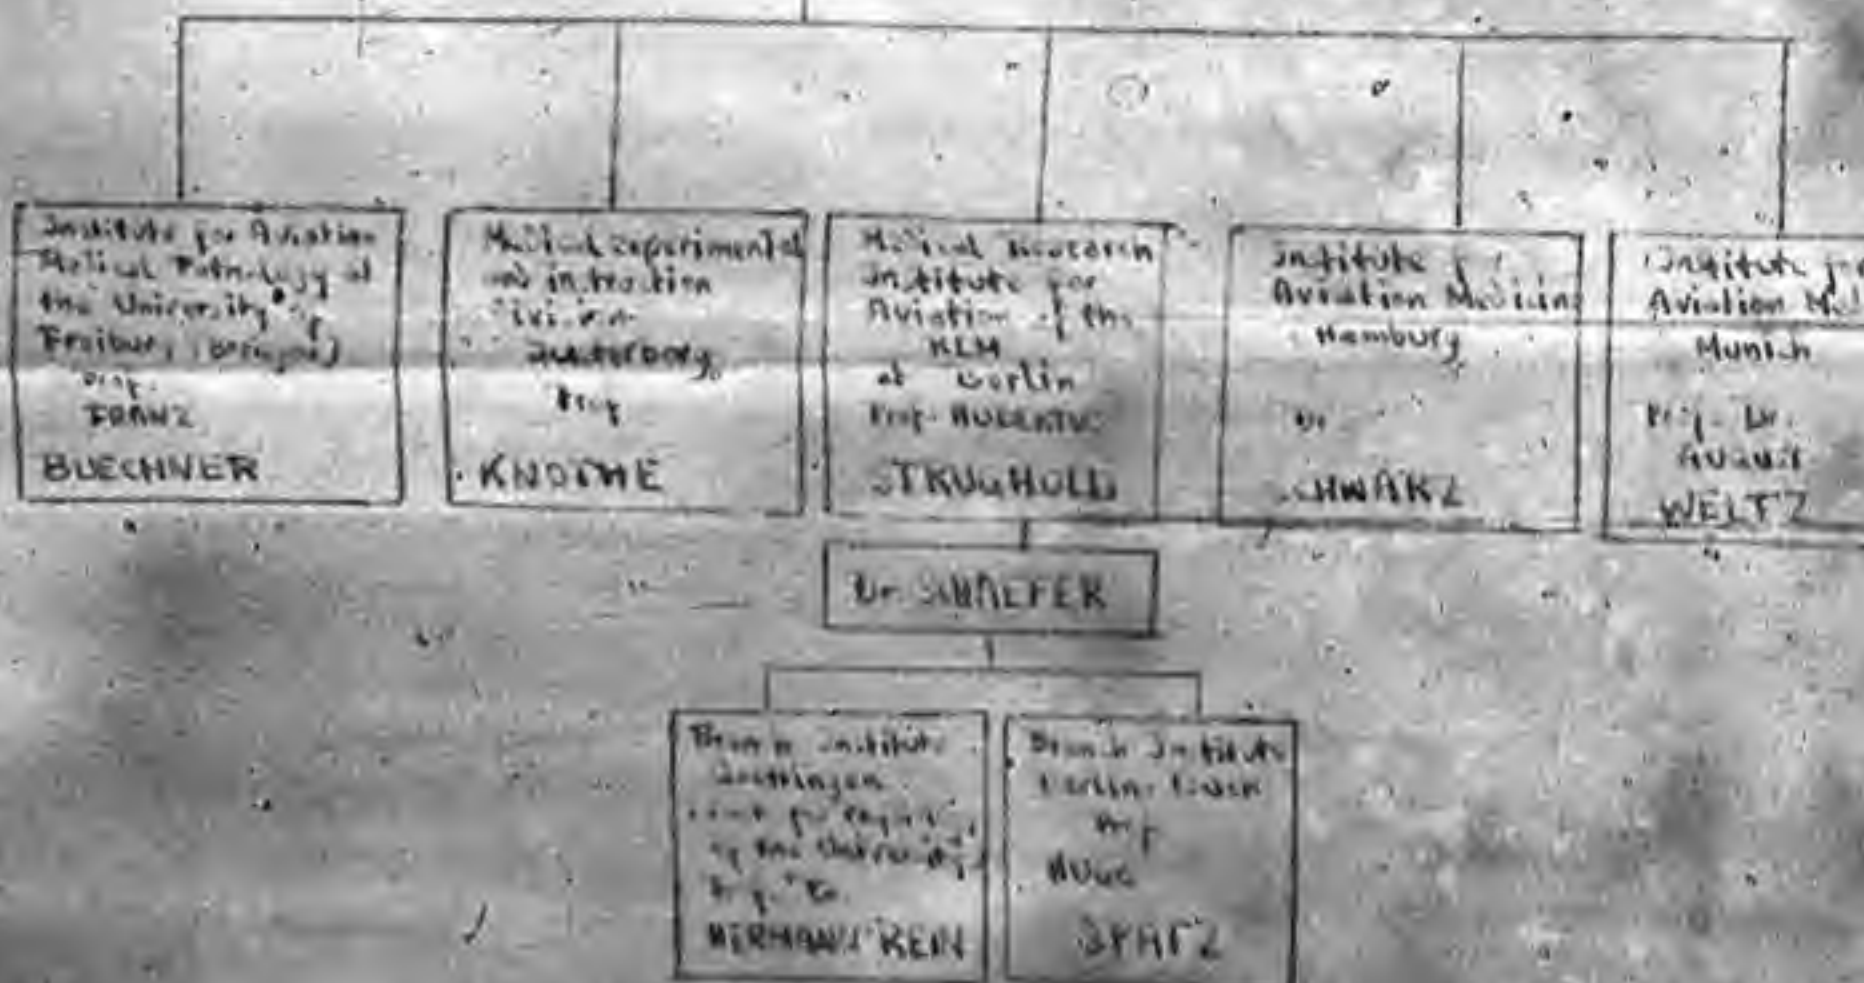 Institute for Aviation
Medical Pathology at
the University of
Freiburg (Breisgau)
Prof.
FRANZ
BUECHNER
Medical Experimental
and instruction
Division
Jueterbog
Prof
KNOTHE
Medical Research
Institute for
Aviation of the
RLM
at Berlin
Prof. HUBERTUS
STRUGHOLD
Institute for
Aviation Medicine
Hamburg
Dr
SCHWARZ
Institute for
Aviation Med
Munich
Prof. Dr.
AUGUST
WELTZ
Dr. SCHAEFER
Branch Institute
Goettingen
of the University
Prof. Dr.
HERMANN REIN
Branch Institute
Berlin-Buch
Prof
HUGO
SPATZ